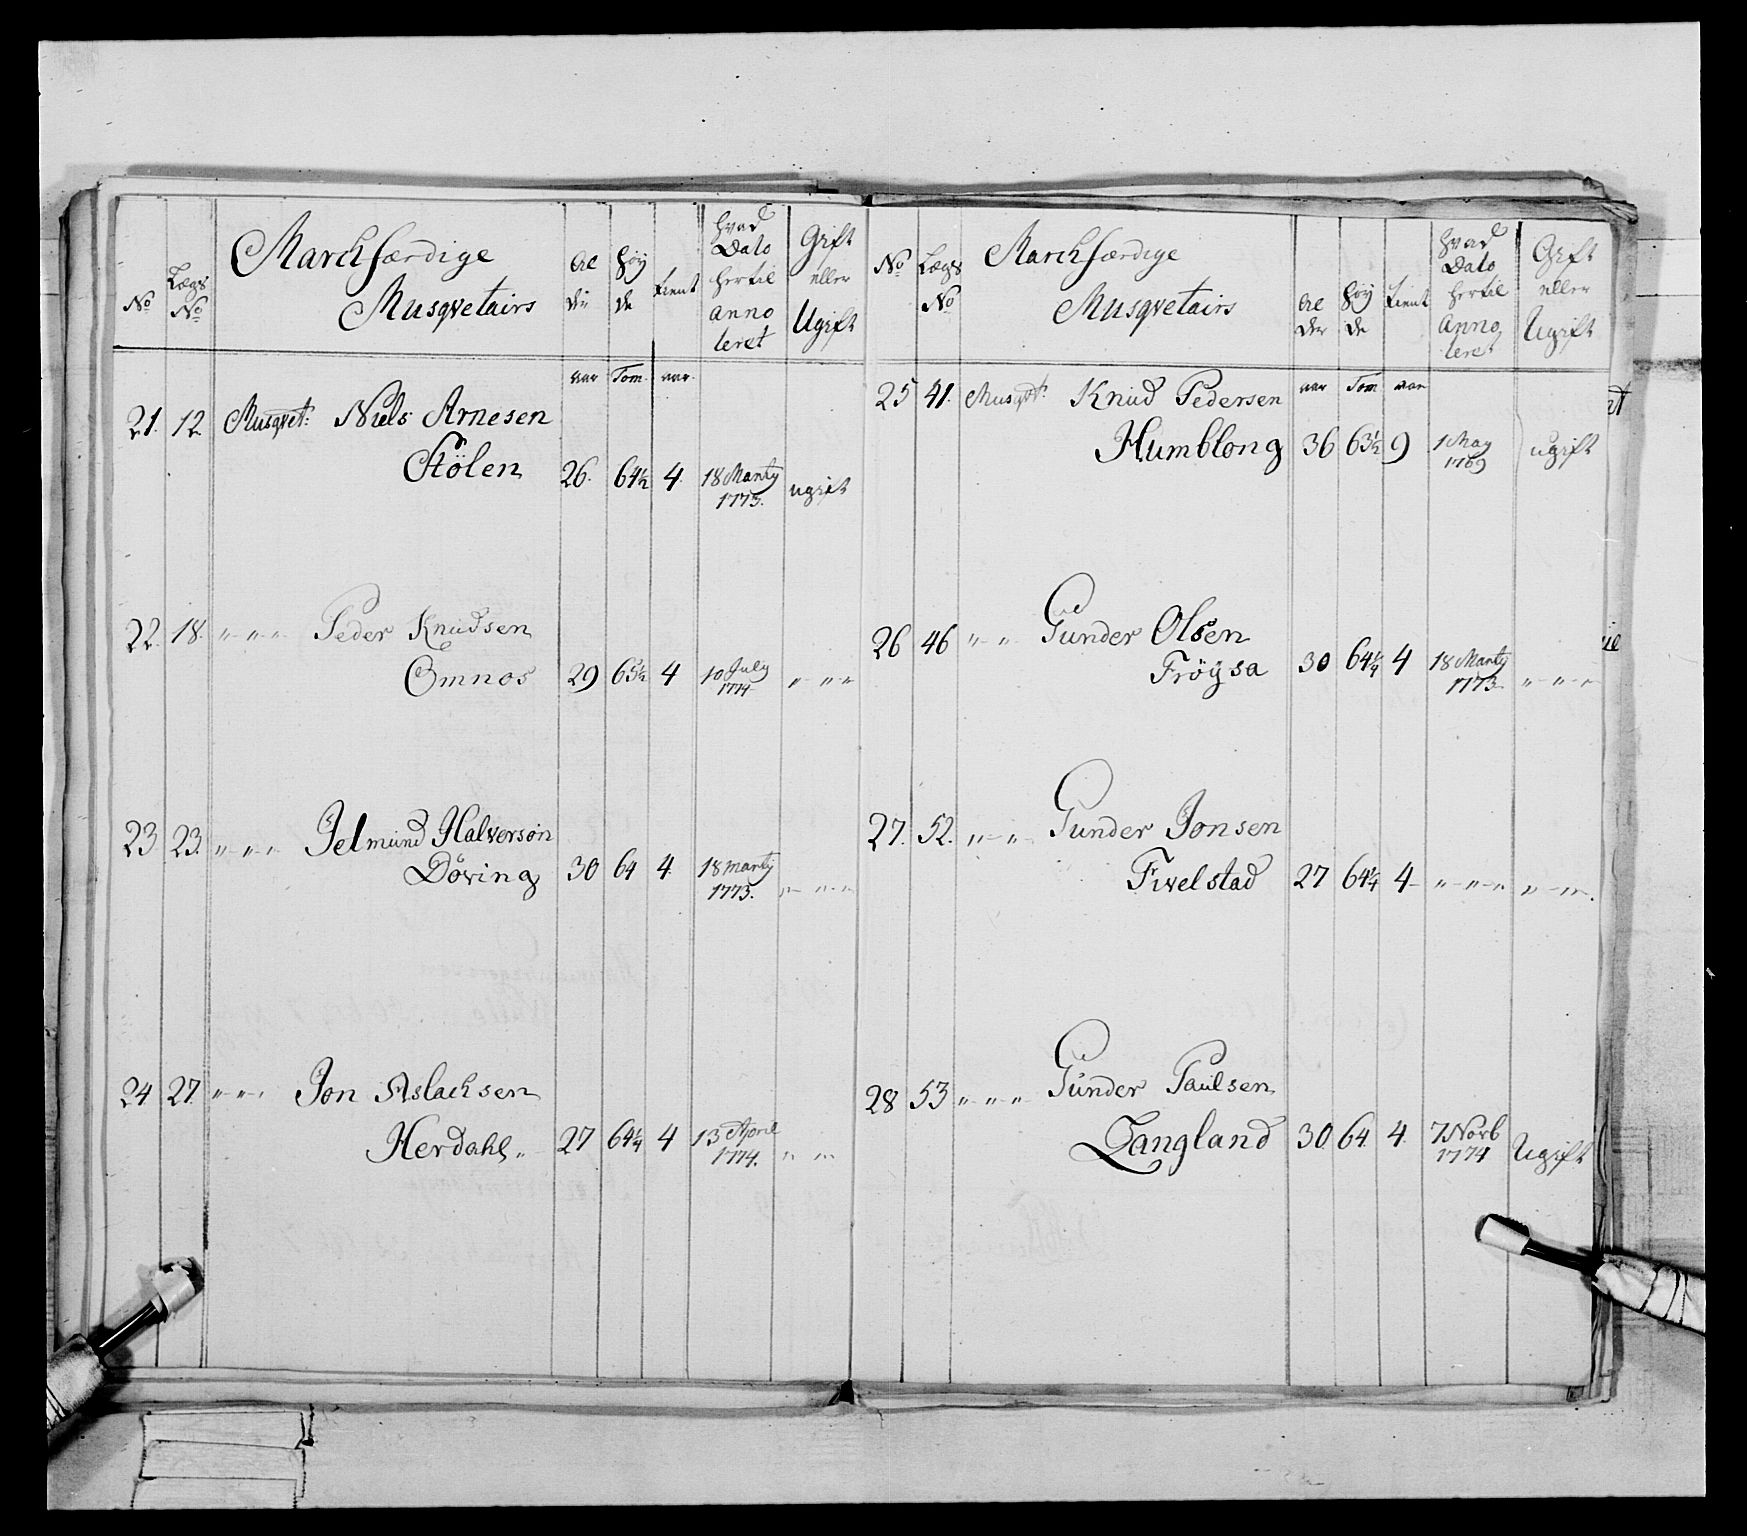 No Lægs No Marchfærdige Musqvetairs Al der Høy de tient hvad Dato hertil anno teret Gift eller Ugift
aar Tom. aar.
21. 12. Musqvet: Niels Arnesen
Stölen 26. 64½ 4. 18 Marty 1773. ugift
22. 18. " " " Peder Knudsen
Omnos 29 65½ 4 10 July 1774 " " "
23 23. " " " Jelmund Halversön
Döving 30 64 4. 18 marty 1773. " " "
24 27. " " " Jon Aslachsen
Herdahl " 27 64¼ 4 13 April 1774. " "
No Lægs No Marchfærdige Musqvetairs Al der Höy de tient hvad Dato hertil Anno teret Gift eller Ugift
aar Tom. aar
25 41. Musqvt: Knud Pedersen
Humblong 36 63½ 9 1 May 1769 ugift
26 46 " " Gunder Olsen
Fröysa 30 64¼ 4 18 Marty 1773. " " "
27. 52. " " Gunder Jonsen
Fivelstad 27 64¼ 4 " " " " "
28 53 " " " Gunder Paulsen
Langland 30 64. 4. 7 Novb 1774 Ugift